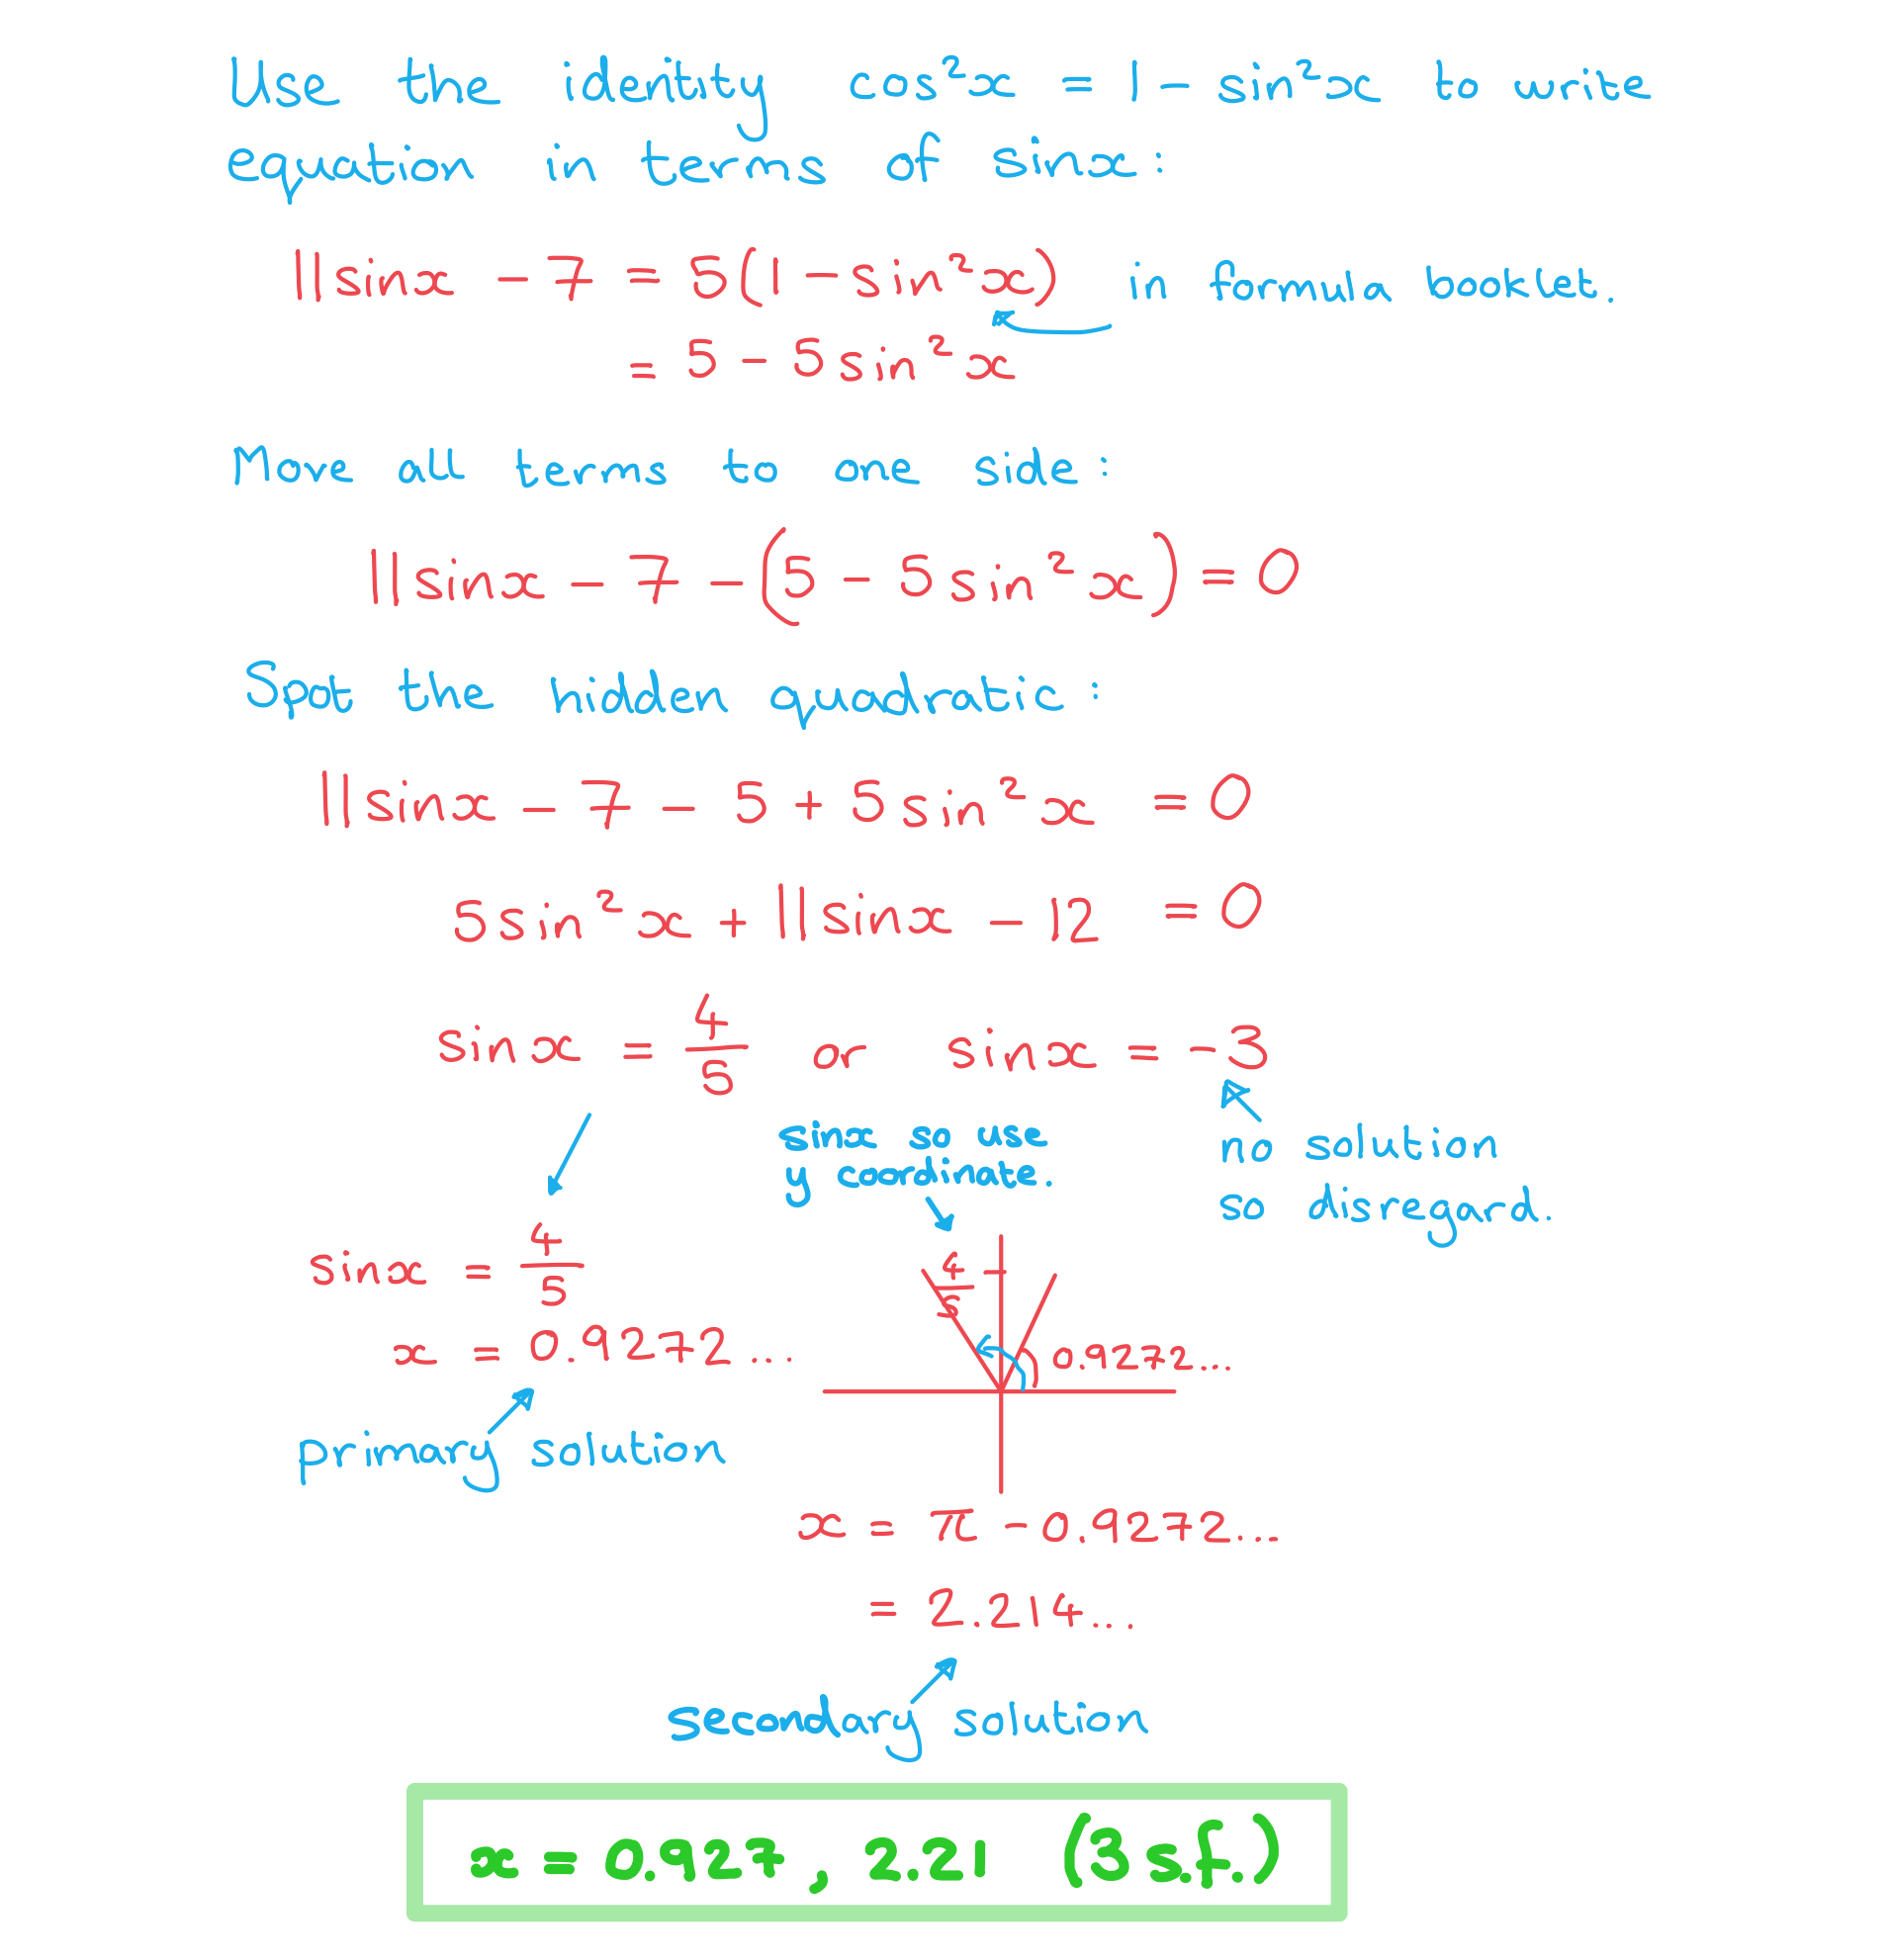 Use the identity cos²x = 1 - sin²x to write
equation in terms of sinx:
11sinx - 7 = 5(1 - sin²x) in formula booklet.
= 5 - 5sin²x
Move all terms to one side:
11sinx - 7 - (5 - 5sin²x) = 0
Spot the hidden quadratic:
11sinx - 7 - 5 + 5sin²x = 0
5sin²x + 11sinx - 12 = 0
sinx = 4/5 or sinx = -3
no solution
so disregard.
sinx so use
y coordinate.
sinx = 4/5
x = 0.9272...
primary solution
4/5
0.9272...
x = π - 0.9272...
= 2.214...
secondary solution
x = 0.927, 2.21 (3 s.f.)